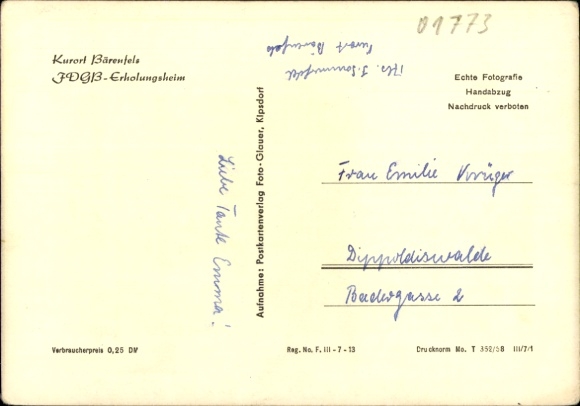 01773
Kurort Bärenfels
FDGB-Erholungsheim
Kurort Bärenfels
Echte Fotografie
Handabzug
Nachdruck verboten
Liebe Tante Emma!
Aufnahme: Postkartenverlag Foto-Glauer, Kipsdorf
Frau Emilie Krüger
Dippoldiswalde
Badergasse 2
Verbraucherpreis 0,25 DM
Reg. No. F. III - 7 - 13
Drucknorm No. T 352/58 III/7/1